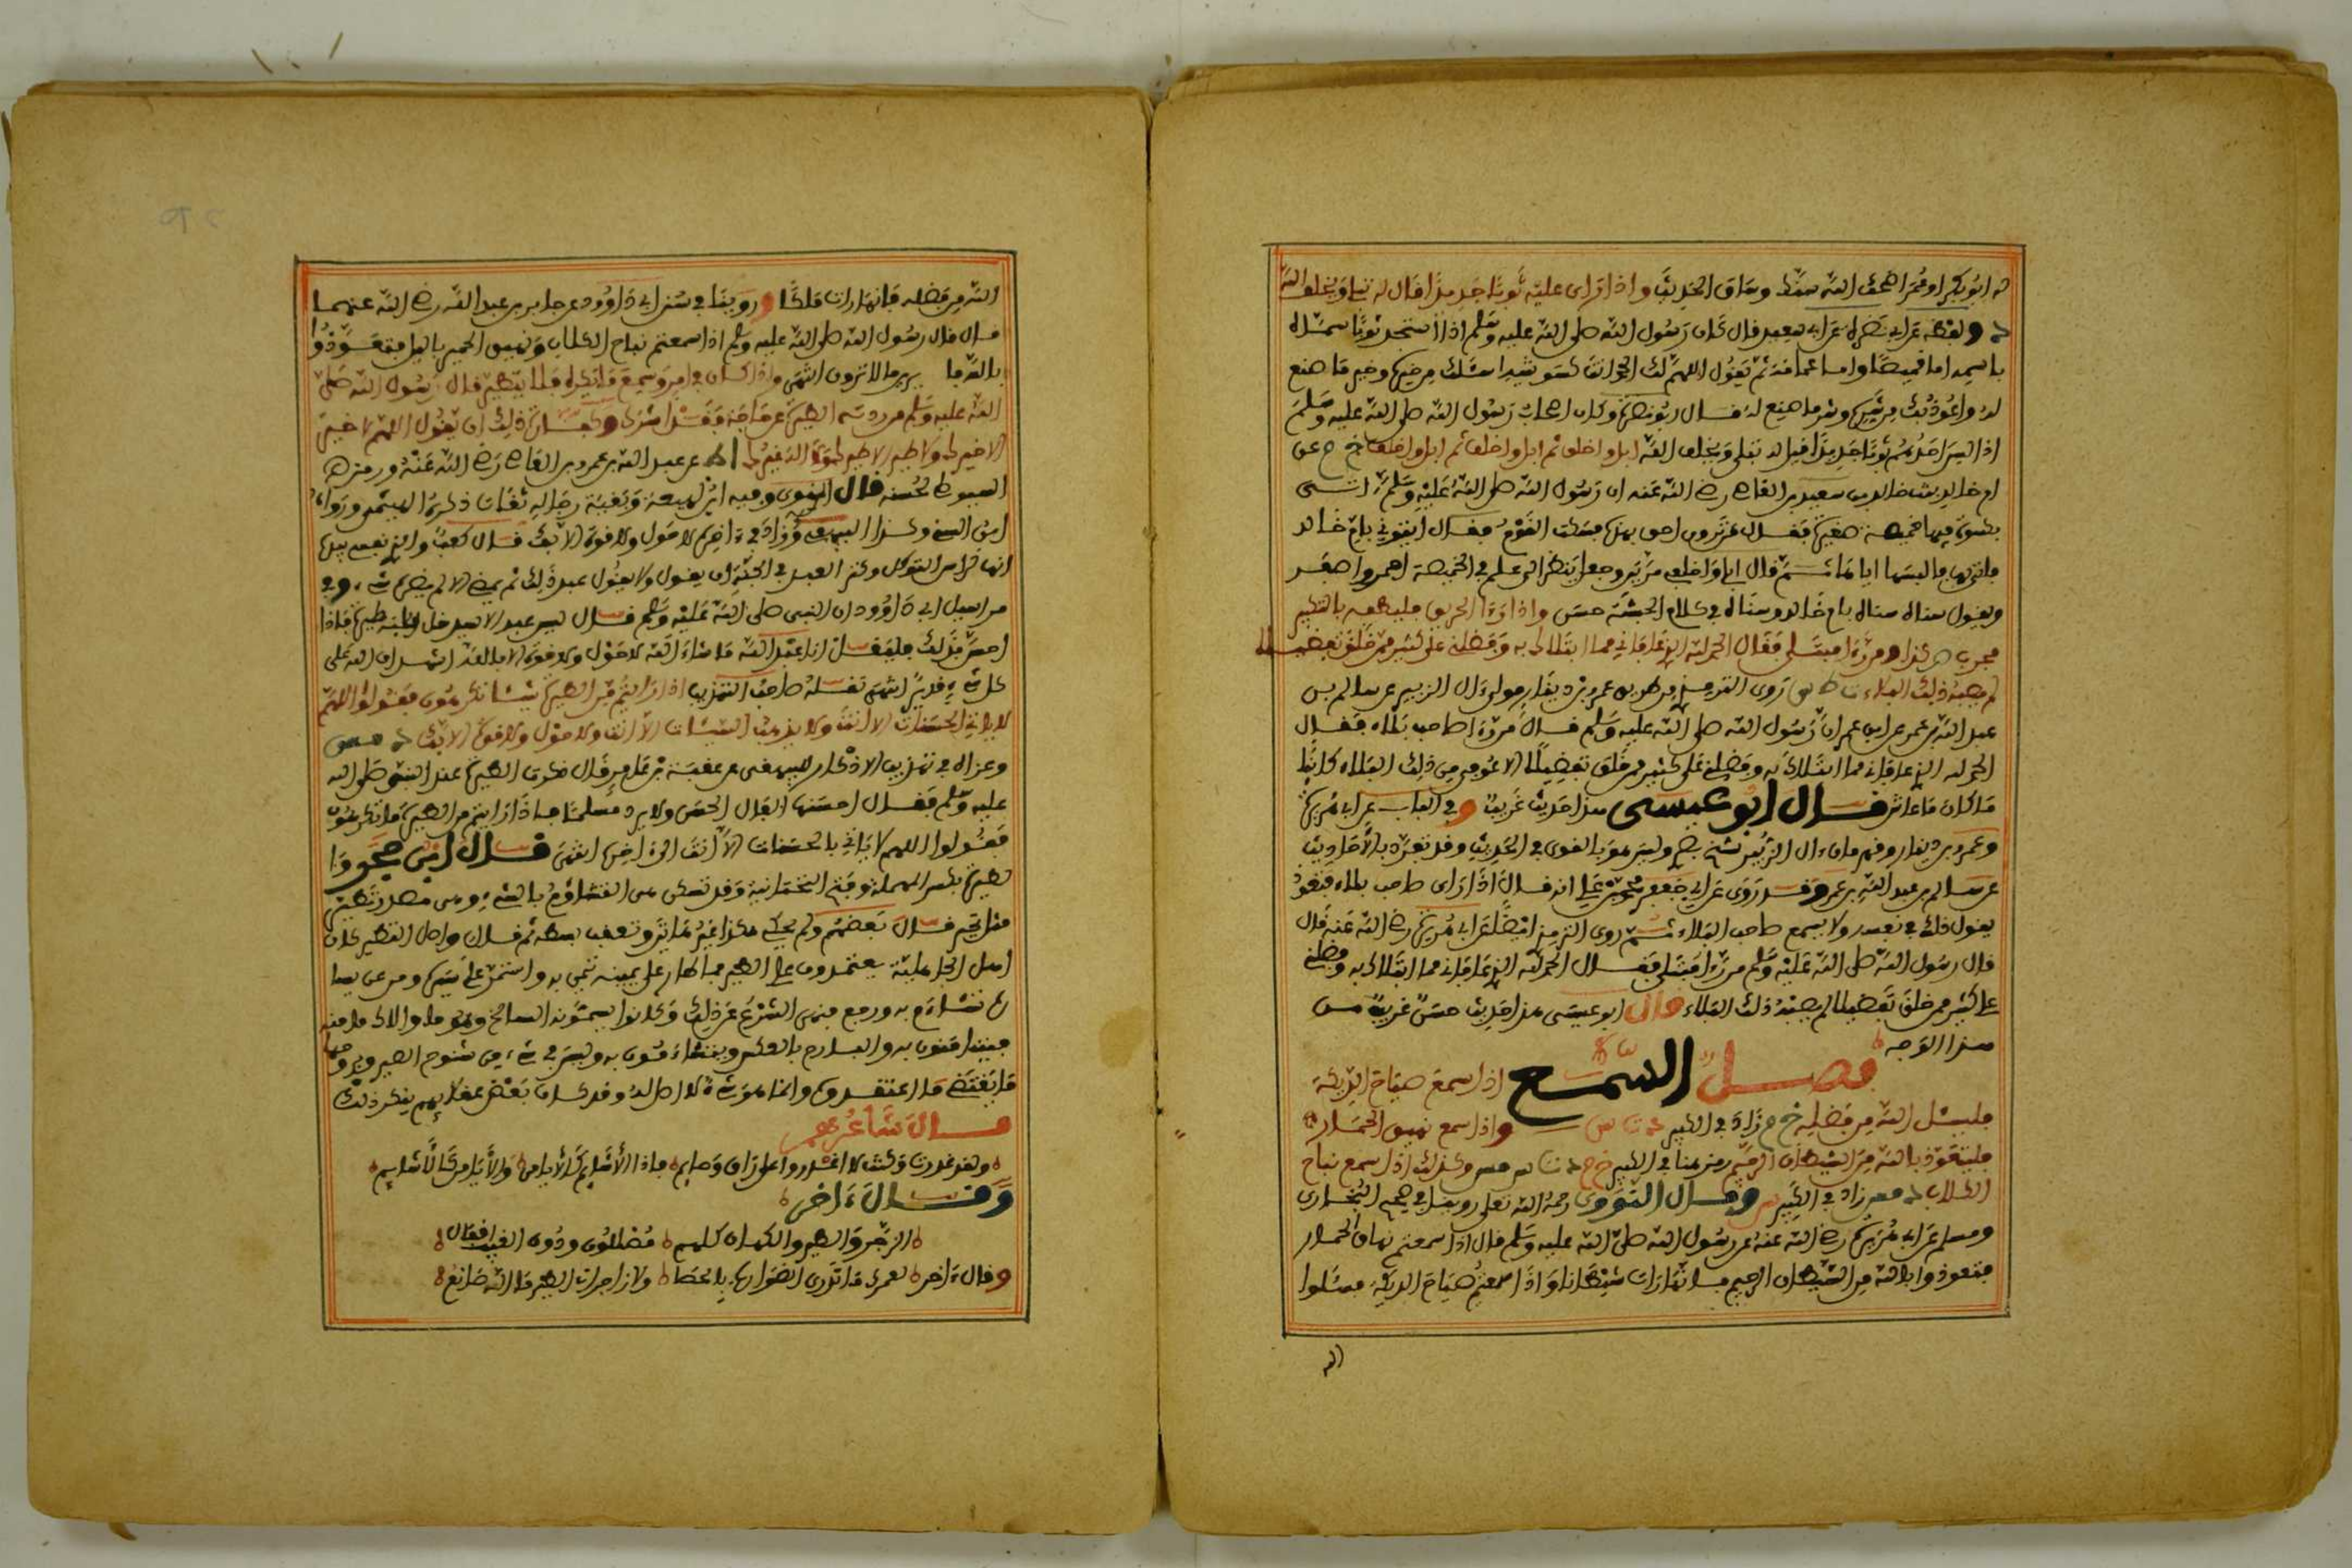 له ابو بكر او عمر اضحك الله سنك وساق الحديث واذا رأى عليه ثوبا جديدا قال له تبلي ويخلف الله
د ولفظه عن ابي نضرة عن ابي سعيد قال كان رسول الله صلى الله عليه وسلم اذا استجد ثوبا سماه
باسمه اما قميصا واما عمامة ثم يقول اللهم لك الحمد انت كسوتنيه اسئلك من خيره وخير ما صنع
له واعوذ بك من شره وشر ما صنع له قال ابو نضرة وكان اصحاب رسول الله صلى الله عليه وسلم
اذا لبس احدهم ثوبا جديدا قيل له تبلي ويخلف الله ابل واخلق ثم ابل واخلق ثم ابل واخلق خ د عن
ام خالد بنت خالد بن سعيد بن العاص رضي الله عنه ان رسول الله صلى الله عليه وسلم اتى
بكسوة فيها خميصة صغيرة فقال من ترون احق بهذه فسكت القوم فقال ايتوني بام خالد
فاتي بها فالبسها اياها ثم قال ابلي واخلقي مرتين وجعل ينظر الى علم في الخميصة احمر واصفر
ويقول سناه سناه يا ام خالد وسناه في كلام الحبشة حسن واذا رءا الحريق فليطفه بالتكبير
مجرب ص كذا ومن رءا مبتلى فقال الحمد لله الذي عافاني مما ابتلاك به وفضلني على كثير ممن خلق تفضيلا
لم يصبه ذلك البلاء ت طس روى الترمذي من طريق عمرو بن دينار مولى ءال الزبير عن سالم بن
عبد الله بن عمر عن ابن عمر ان رسول الله صلى الله عليه وسلم قال من رءا صاحب بلاء فقال
الحمد لله الذي عافاني مما ابتلاك به وفضلني على كثير ممن خلق تفضيلا الا عوفي من ذلك البلاء كائنا
ما كان ما عاش قال ابو عيسى هذا حديث غريب وفي الباب عن ابي هريرة
وعمرو بن دينار قهرمان ءال الزبير شيخ بصري وليس هو بالقوي في الحديث وقد تفرد بالأحاديث
عن سالم بن عبد الله بن عمر وقد روى عن ابي جعفر محمد بن علي انه قال اذا رأى صاحب بلاء فتعوذ
يقول ذلك في نفسه ولا يسمع صاحب البلاء ثم روى الترمذي ايضا عن ابي هريرة رضي الله عنه قال
قال رسول الله صلى الله عليه وسلم من رءا مبتلى فقال الحمد لله الذي عافاني مما ابتلاك به وفضلني
على كثير ممن خلق تفضيلا لم يصبه ذلك البلاء قال ابو عيسى هذا حديث حسن غريب من
هذا الوجه
فصل السمع اذا سمع صياح الديكة
فليسئل الله من فضله خ م زاد في الكبير د ت س واذا سمع نهيق الحمار
فليتعوذ بالله من الشيطان الرجيم رمز هنا في الكبير خ م د ت س مس وكذلك اذا سمع نباح
الكلاب د مس زاد في الكبير س وقال النووي رحمه الله تعلى روينا في صحيح البخاري
ومسلم عن ابي هريرة رضي الله عنه عن رسول الله صلى الله عليه وسلم قال اذا سمعتم نهاق الحمار
فتعوذوا بالله من الشيطان الرجيم فانها رات شيطانا واذا سمعتم صياح الديكة فسئلوا
الله
الله من فضله فانها رات ملكا وروينا في سنن ابي داوود عن جابر بن عبد الله رضي الله عنهما
قال قال رسول الله صلى الله عليه وسلم اذا سمعتم نباح الكلاب ونهيق الحمير بالليل فتعوذوا
بالله فا يرين ما لا ترون انتهى واذا كان في امر وسمع ما يكره فلا يتطير قال رسول الله صلى
الله عليه وسلم من ردته الطيرة عن حاجة فقد اشرك وكفارة ذلك ان يقول اللهم لا خير
الا خيرك ولا طير الا طيرك ولا اله غيرك ا ط عن عبد الله بن عمرو بن العاص رضي الله عنه ورمز هـ
السيوطي لحسنه قال المناوي وفيه ابن لهيعة وبقية رجاله ثقات ذكره الهيثمي ورواه
ابن السني وكذا البيهقي وزاد في ءاخره لا حول ولا قوة الا بك قال كعب والذي نفسي بيده
انها لراس التوكل وكنز العبد في الجنة ان يقول ولا يقول عبد ذلك ثم يمضي الا لم يضره شيء وفي
مراسيل ابي داوود ان النبي صلى الله عليه وسلم قال ليس عبد الا سيدخل قلبه طيرة فاذا
احس بذلك فليقل انا عبد الله ما شاء الله لا حول ولا قوة الا بالله اشهد ان الله على
كل شيء قدير انتهى نقله صاحب التهذيب اذا رايتم من الطيرة شيئا تكرهون فقولوا اللهم
لا ياتي الحسنات الا انت ولا يذهب السيئات الا انت ولا حول ولا قوة الا بك د مص
وعزاه في تهذيب الاذكار للبيهقي عن عقبة بن عامر قال ذكرت الطيرة عند النبي صلى الله
عليه وسلم فقال احسنها الفال الحسن ولا يرد مسلما فاذا رايتم من الطيرة ما تكرهون
فقولوا اللهم لا ياتي بالحسنات الا انت الى ءاخره انتهى قال ابن حجر وا
لطيرة بكسر المهملة وفتح التحتانية وقد تسكن هي التشاؤم بالشيء وهي مصدر تطير
مثل تحير قال بعضهم ولم يجئ هكذا غير هاتين وتعقب بطه ثم قال واصل التطير كان
اهل الجاهلية يعتمدون على الطير فما طار على يمينه تيمن به واستمر على سيره ومن عن يسا
ره تشاءم به ورجع فنهى الشرع عن ذلك وكانوا يسمونه السانح وهو ما والاك ميامنه
فيتيامنون به والبارح بالعكس ويتشاءمون به وليس في شيء من سنوح الطير وبروحها
ما يقتضي ما اعتقدوه وانما هو شيء لا اصل له وقد كان بعض عقلائهم ينكر ذلك
قال شاعرهم
ولقد غدوت وكنت لا اغدو على واق وحاتم فاذا الأشائم كالأيامن والأيامن كالأشائم
وقال ءاخر
الزجر والطير والكهان كلهم مضللون ودون الغيب اقفال
وقال ءاخر لعمرك ما تدري الضوارب بالحصا ولا زاجرات الطير ما الله صانع